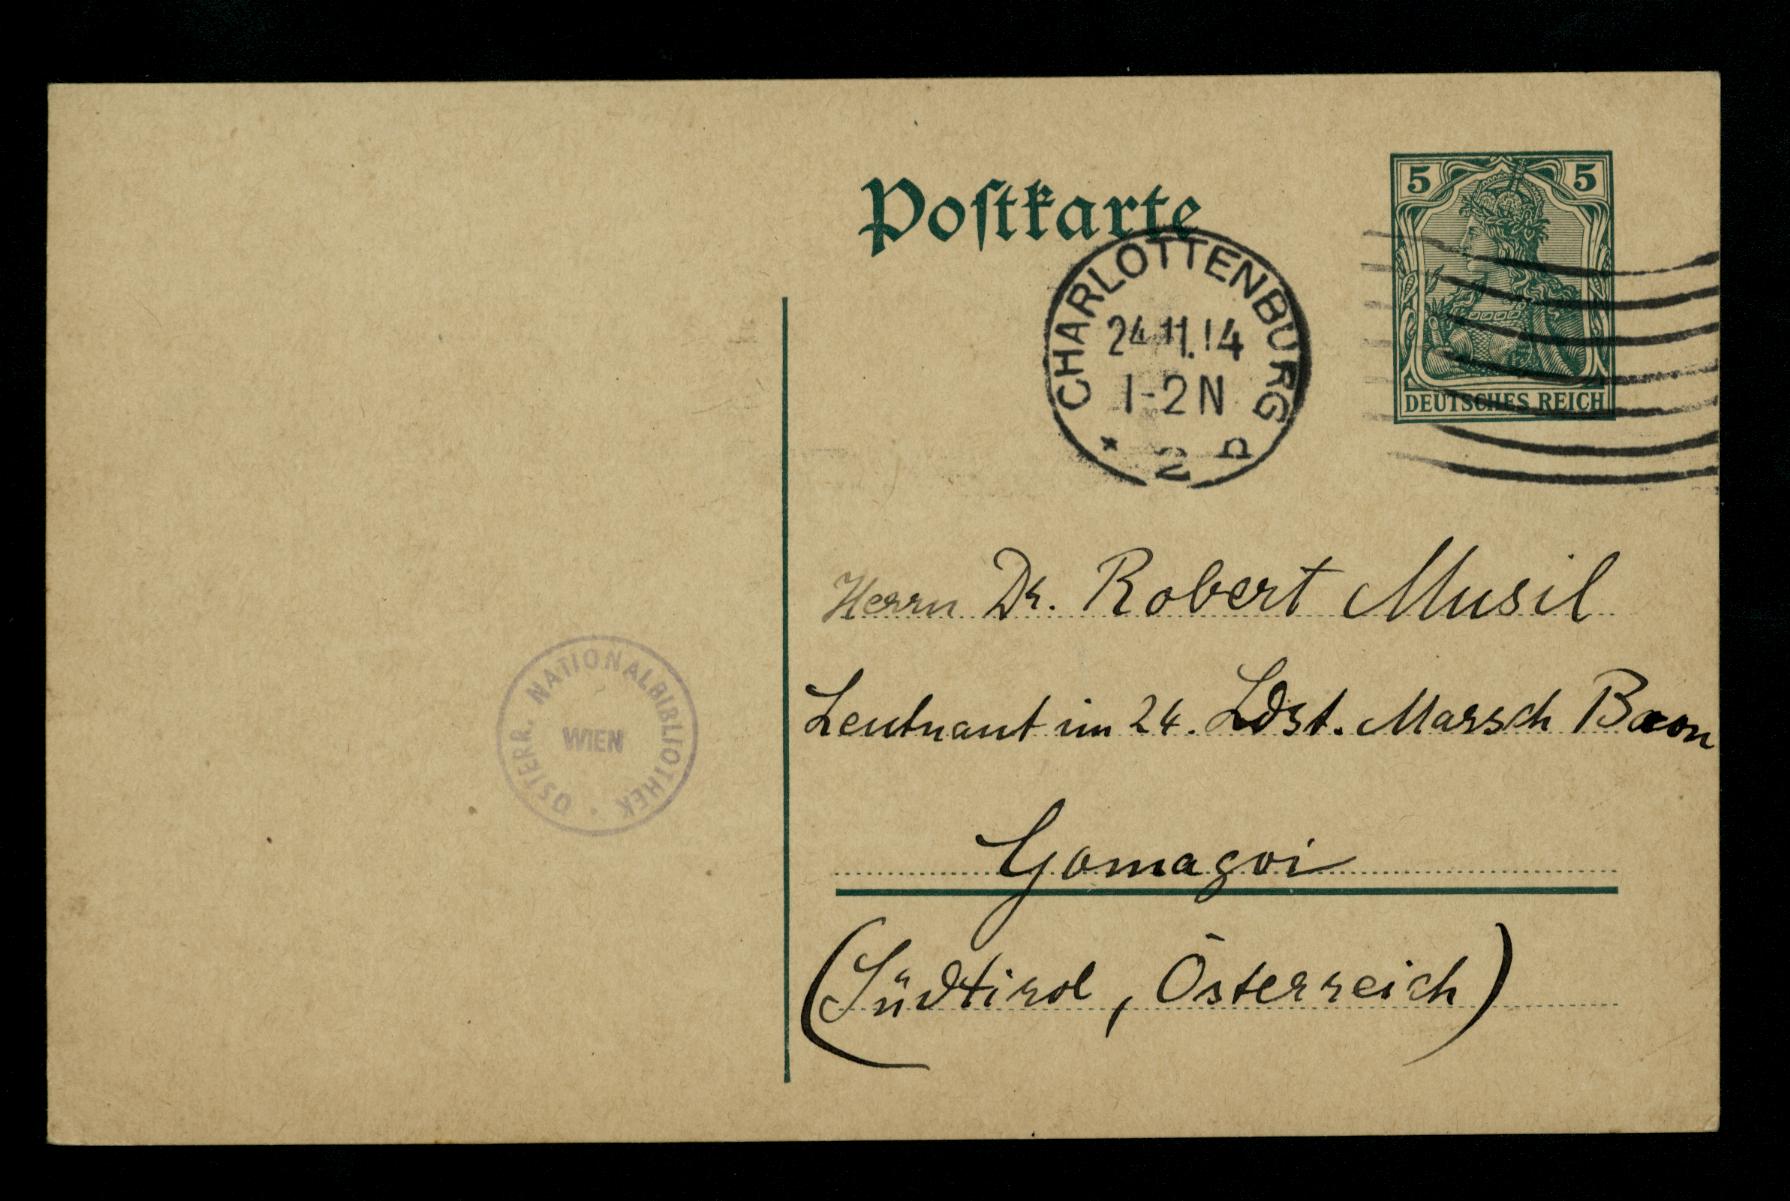 Postkarte
5 5
DEUTSCHES REICH
CHARLOTTENBURG
24.11.14
1-2N
* 2 d
Herrn Dr. Robert Musil
Leutnant im 24. Ldst. Marsch Baon
Gomagoi
(Südtirol, Österreich)
ÖSTERR. NATIONALBIBLIOTHEK
WIEN